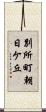 別所町朝日ケ丘